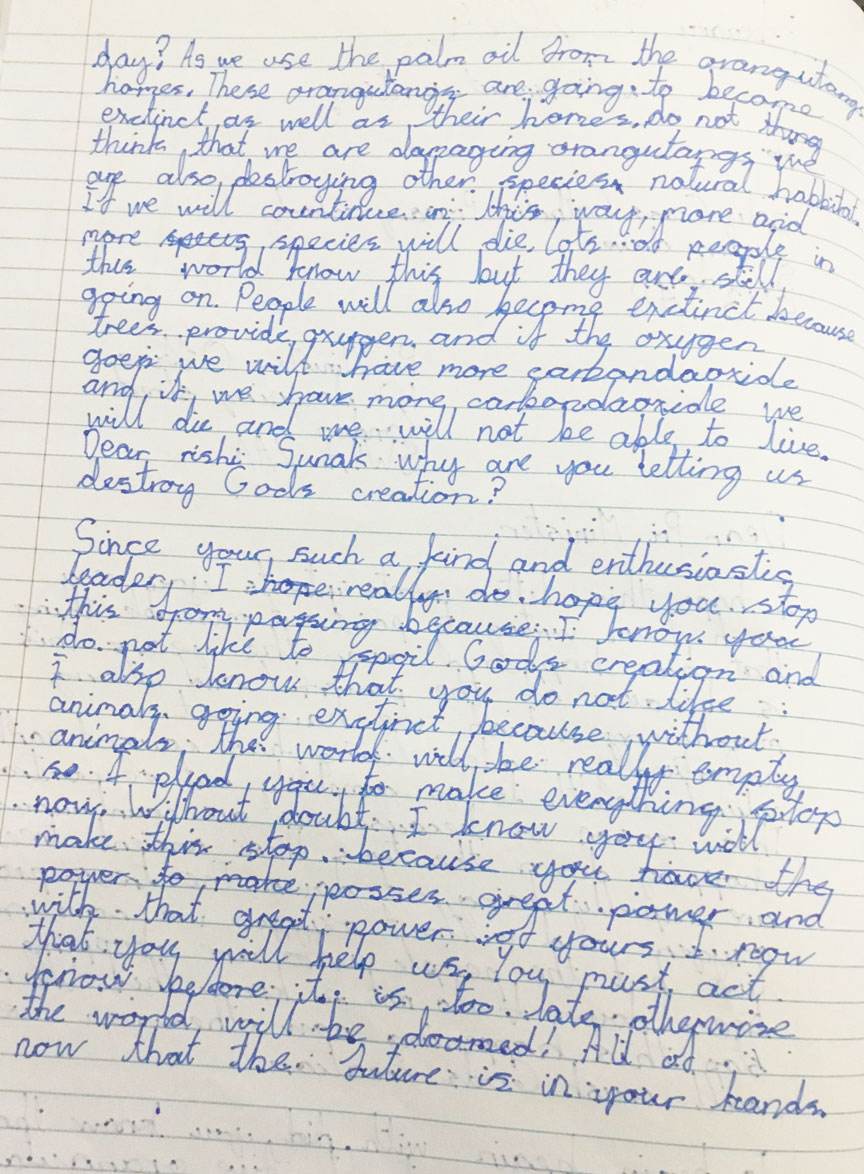 day? As we use the palm oil from the orangutang
homes. These orangutangs are going to become
exctinct as well as their homes. do not thing
think that we are damaging orangutangs we
are also destroying other species natural habbitat.
If we will countinue in this way, more and
more species will die. lots of people in
this world know this but they are still
going on. People will also become exctinct because
trees provide oxygen. and if the oxygen
goes we will have more carbondaoxide
and if we have more carbondaoxide we
will die and we will not be able to live.
Dear rishi Sunak why are you letting us
destroy Gods creation?
Since your such a kind and enthusiastic
leader, I hope really do hope you stop
this from passing because I know you
do not like to spoil Gods creation and
I also know that you do not like
animals going exctinct because without
animals the world will be really empty
so I plead you to make everything stop
now. Without doubt I know you will
make this stop because you have the
power to make posses great power and
with that great power of yours I now
that you will help us. You must act
know before it is too late otherwise
the world will be doomed! All of
now that the future is in your hands.